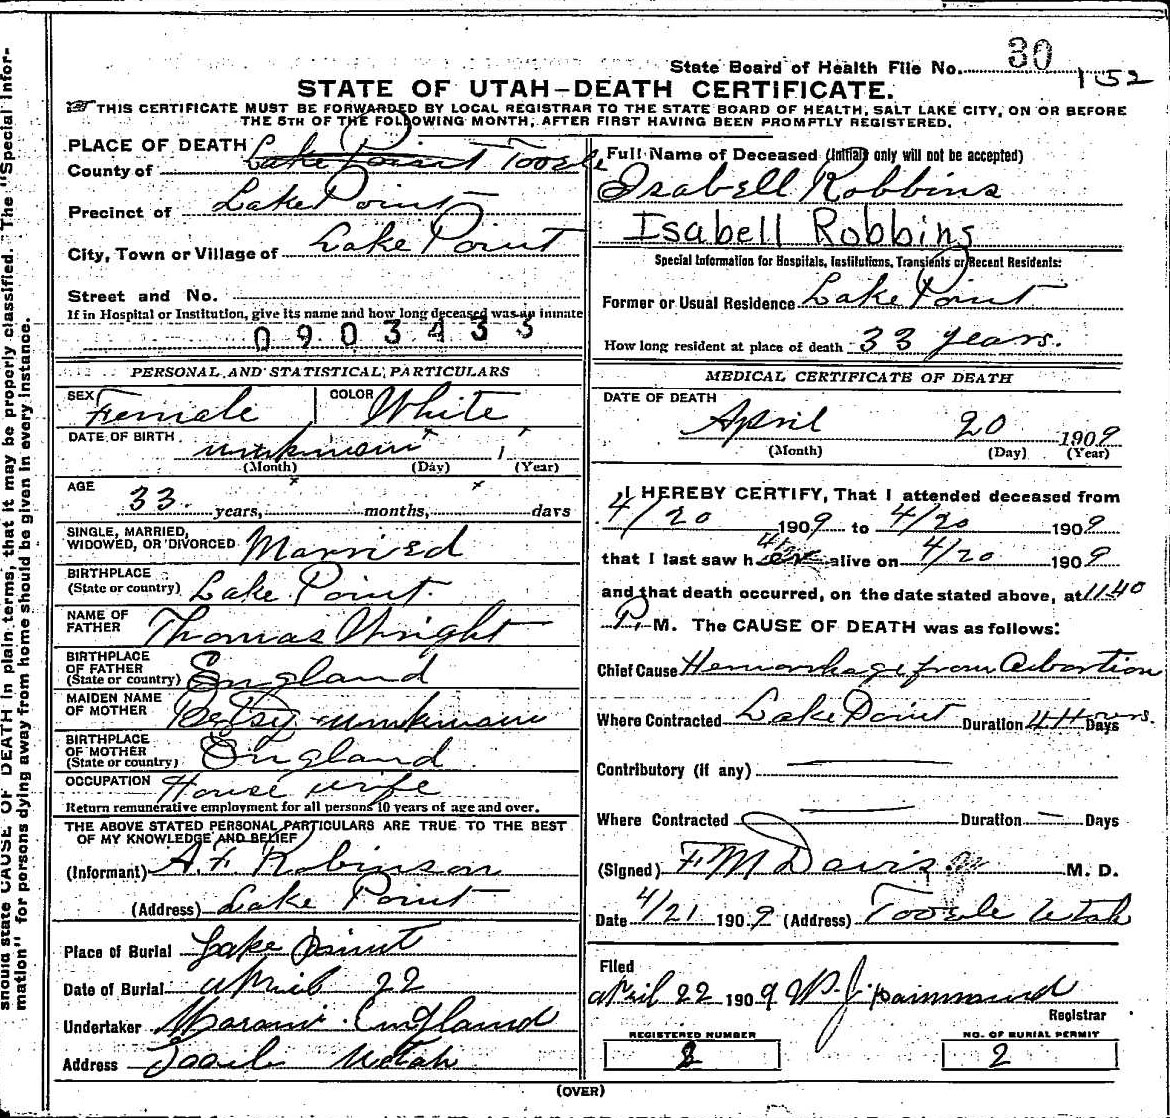 State Board of Health File No. 30
152
STATE OF UTAH-DEATH CERTIFICATE.
THIS CERTIFICATE MUST BE FORWARDED BY LOCAL REGISTRAR TO THE STATE BOARD OF HEALTH, SALT LAKE CITY, ON OR BEFORE
THE 5TH OF THE FOLLOWING MONTH, AFTER FIRST HAVING BEEN PROMPTLY REGISTERED.
PLACE OF DEATH
County of Lake Point Tooele
Precinct of Lake Point
City, Town or Village of Lake Point
Street and No.
If in Hospital or Institution, give its name and how long deceased was an inmate
0903433
PERSONAL AND STATISTICAL PARTICULARS
SEX Female COLOR White
DATE OF BIRTH unknown
(Month) (Day) (Year)
AGE
33 years, months, days
SINGLE, MARRIED,
WIDOWED, OR DIVORCED Married
BIRTHPLACE
(State or country) Lake Point.
NAME OF
FATHER Thomas Wright
BIRTHPLACE
OF FATHER
(State or country) England
MAIDEN NAME
OF MOTHER Betsy unknown
BIRTHPLACE
OF MOTHER
(State or country) England
OCCUPATION House wife
Return remunerative employment for all persons 10 years of age and over.
THE ABOVE STATED PERSONAL PARTICULARS ARE TRUE TO THE BEST
OF MY KNOWLEDGE AND BELIEF
(Informant) A. F. Robinson
(Address) Lake Point
Place of Burial Lake Point
Date of Burial april 22
Undertaker England
Address Tooele Utah
Full Name of Deceased (Initials only will not be accepted)
Isabell Robbins
Isabell Robbins
Special Information for Hospitals, Institutions, Transients or Recent Residents:
Former or Usual Residence Lake Point
How long resident at place of death 33 years.
MEDICAL CERTIFICATE OF DEATH
DATE OF DEATH
April 20 1909
(Month) (Day) (Year)
I HEREBY CERTIFY, That I attended deceased from
4/20 1909 to 4/20 1909
that I last saw her alive on 4/20 1909
and that death occurred, on the date stated above, at 11.40
P. M. The CAUSE OF DEATH was as follows:
Chief Cause Hemorrhage from Abortion
Where Contracted Lake Point Duration 4 Hours. Days
Contributory (if any)
Where Contracted Duration Days
(Signed) F M Davis M. D.
Date 4/21 1909 (Address) Tooele Utah
Filed
april 22 1909
Registrar
REGISTERED NUMBER
2
NO. OF BURIAL PERMIT
2
(OVER)
should state CAUSE OF DEATH in plain terms, that it may be properly classified. The "Special Infor-
mation" for persons dying away from home should be given in every instance.